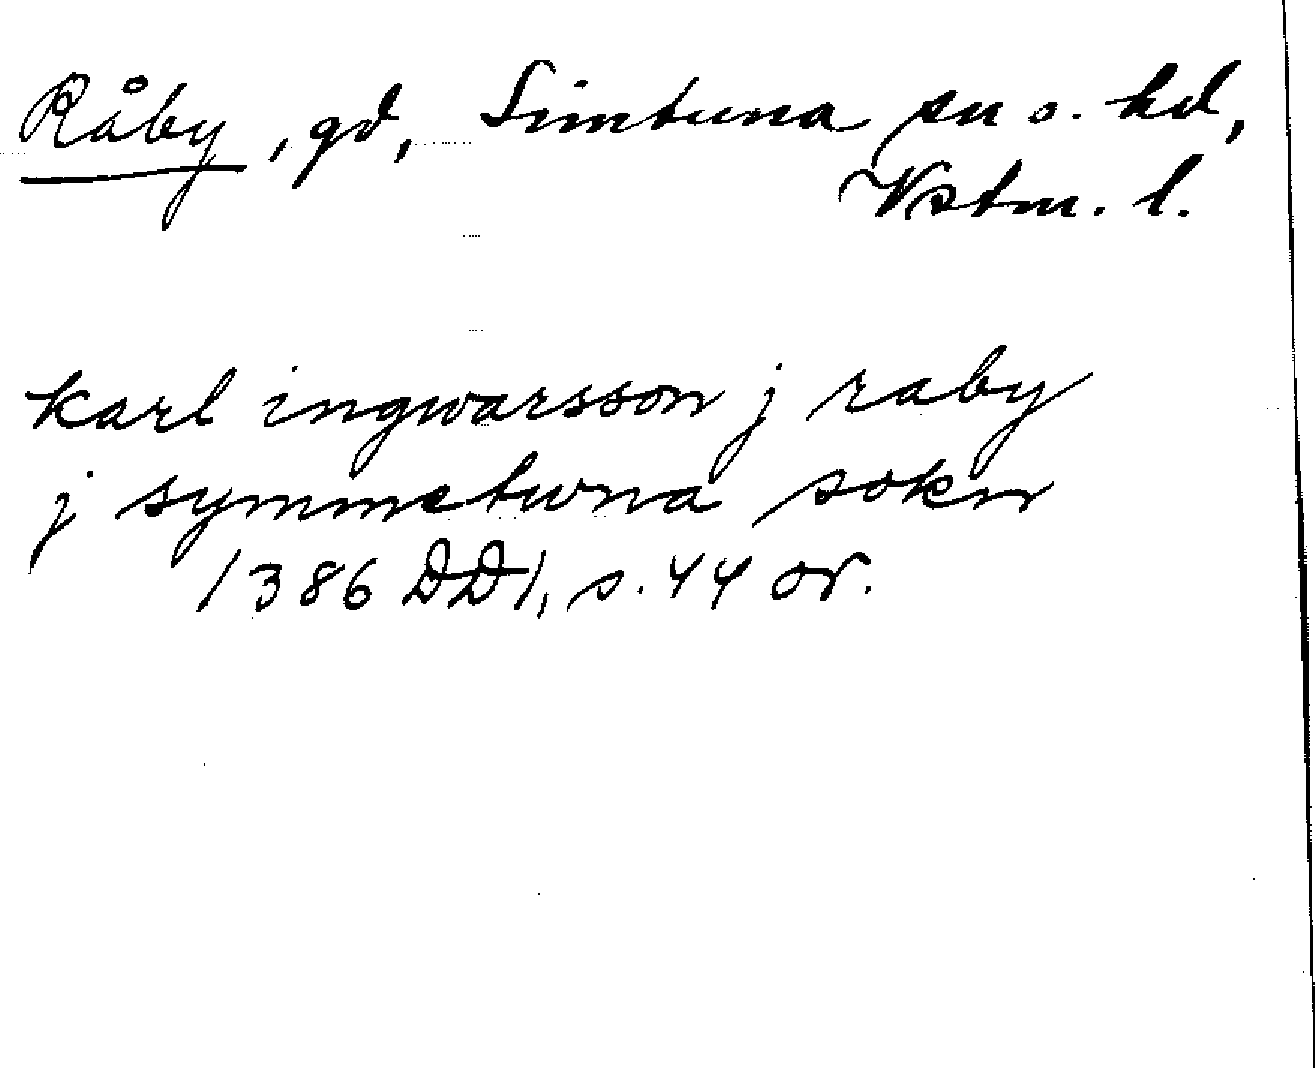 Råby, gd, Simtuna sn o. hd,
Vstm. l.
karl ingwarsson j raby
j symmetwna sokn
1386 DD1, s. 44 or.